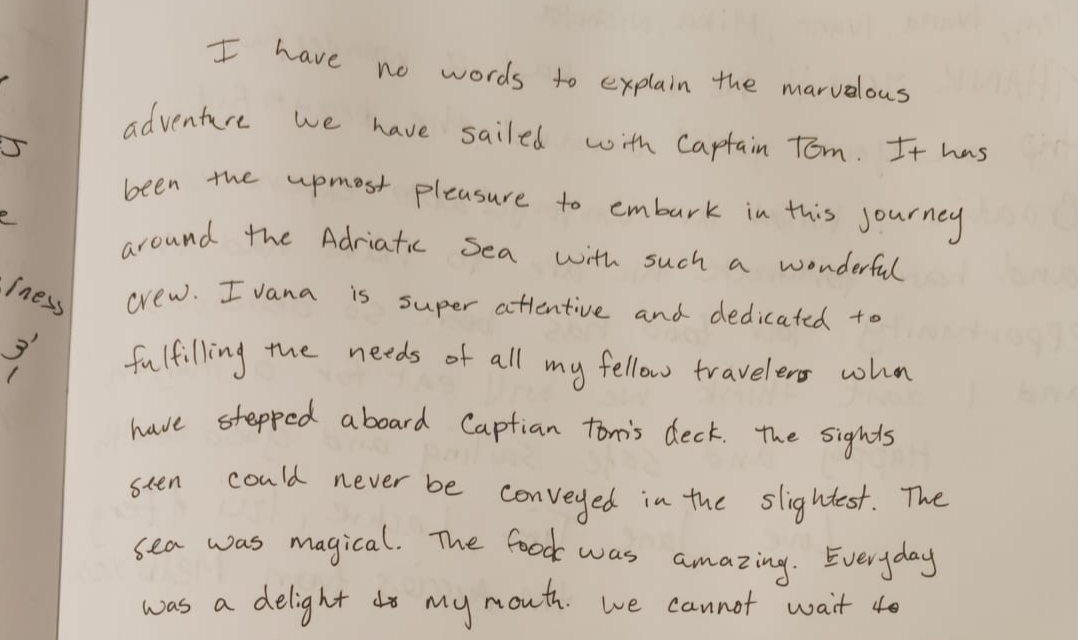 I have no words to explain the marvelous
adventure we have sailed with Captain Tom. It has
been the upmost pleasure to embark in this journey
around the Adriatic Sea with such a wonderful
crew. Ivana is super attentive and dedicated to
fulfilling the needs of all my fellow travelers when
have stepped aboard Captian Tom's deck. The sights
seen could never be conveyed in the slightest. The
sea was magical. The food was amazing. Everyday
was a delight to my mouth. We cannot wait to